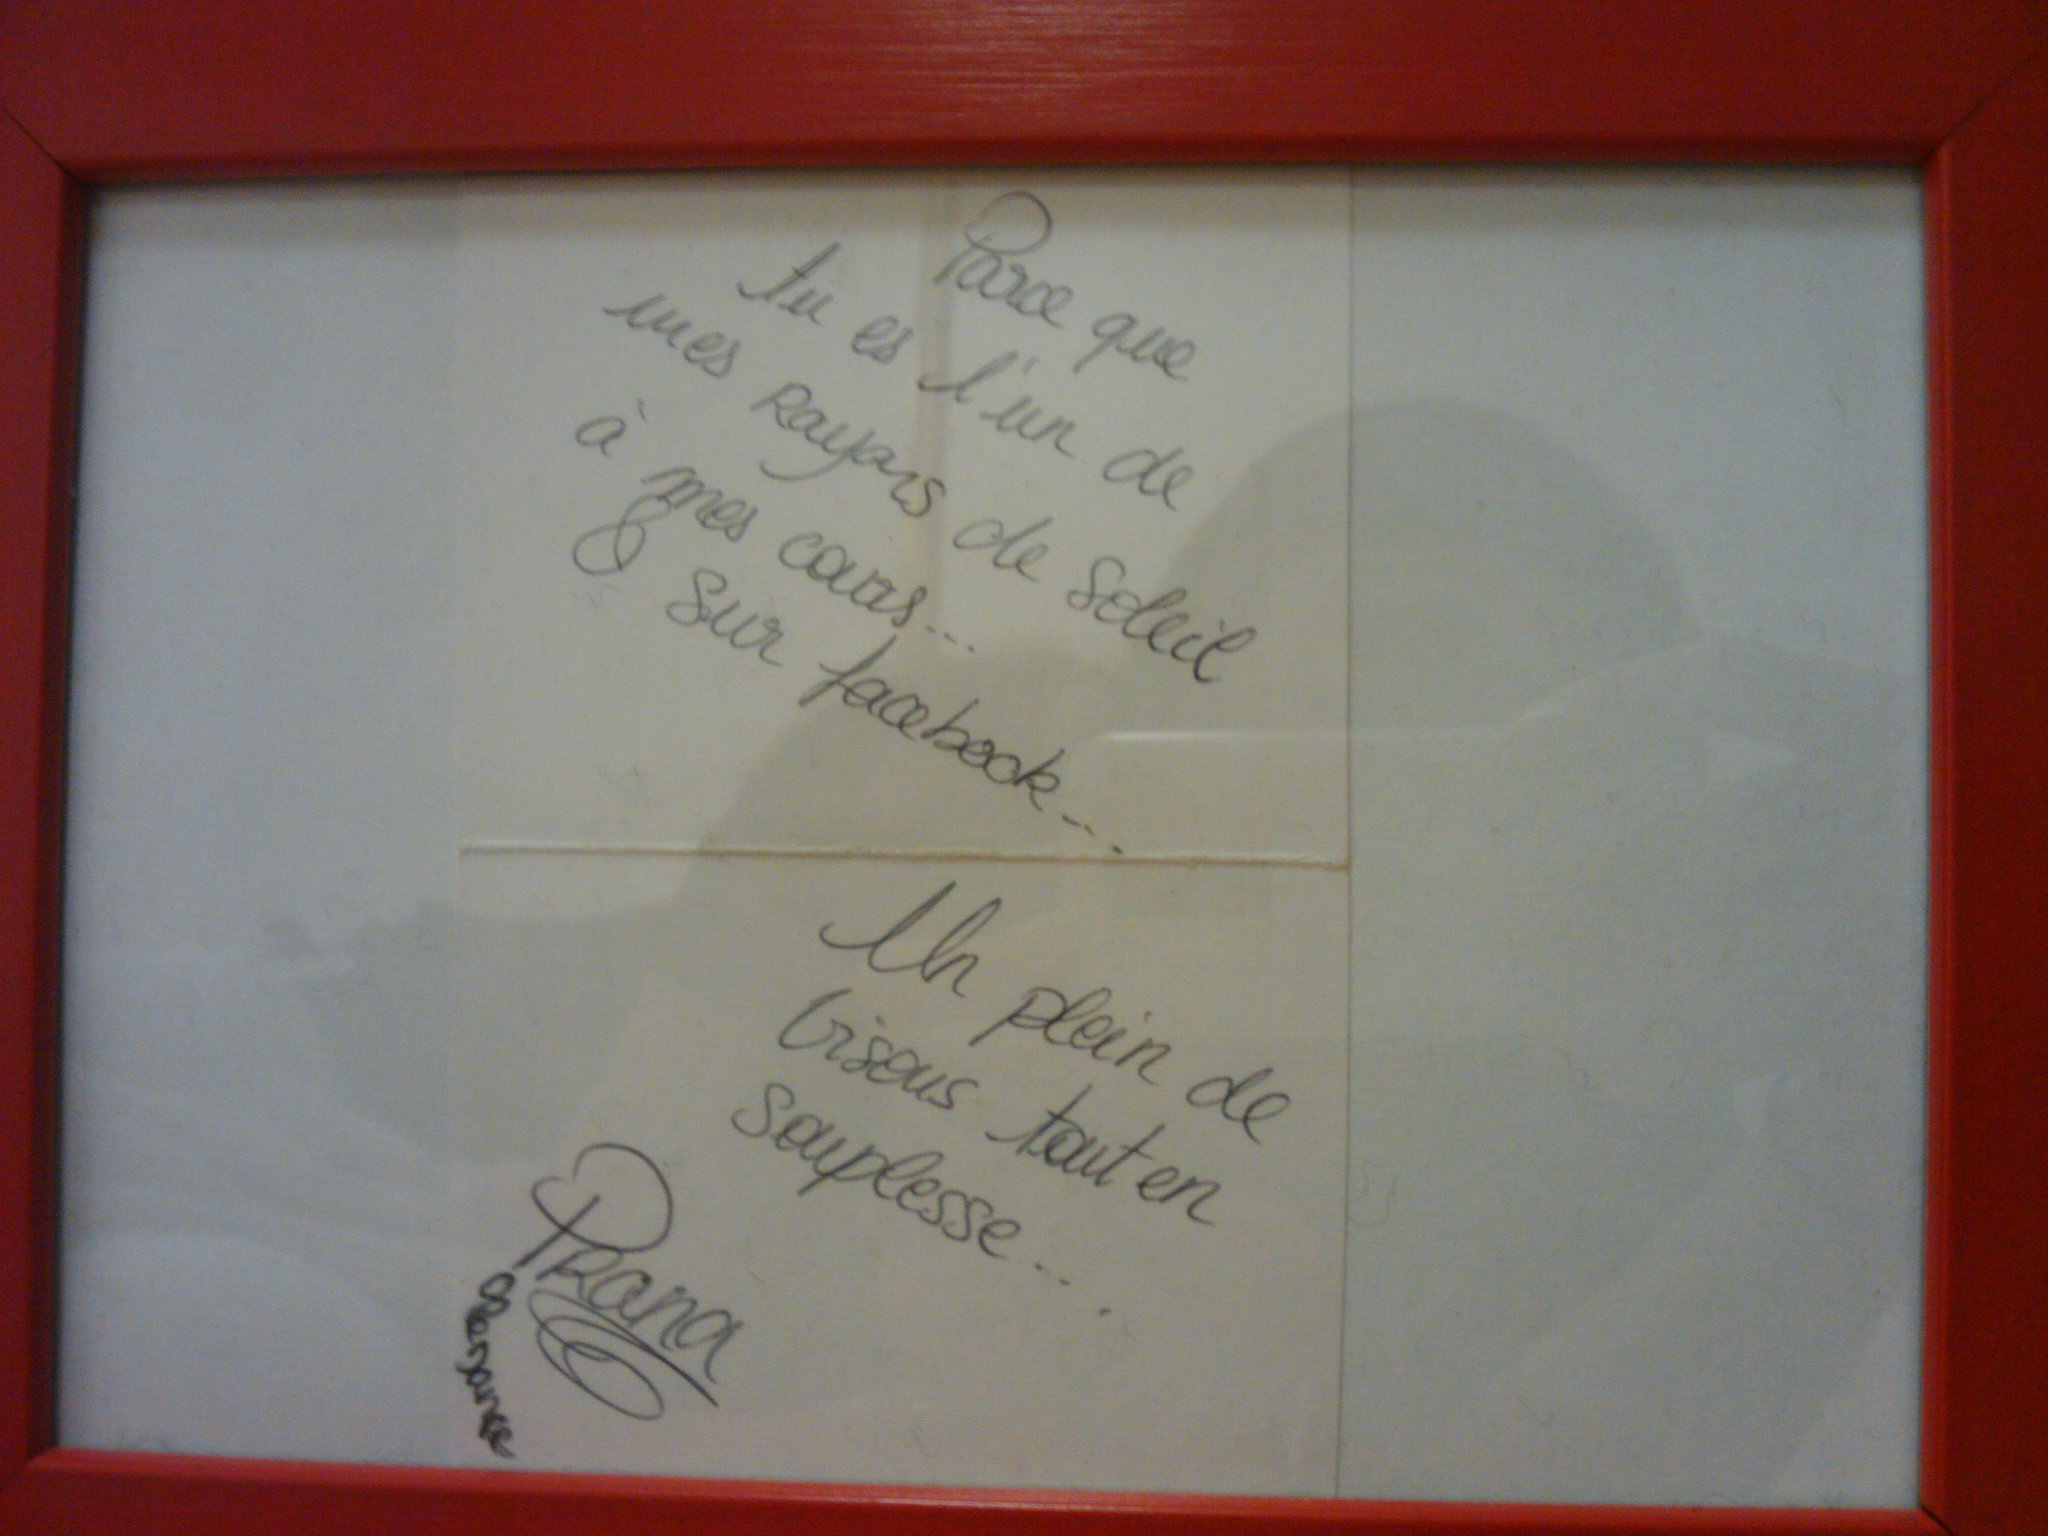 Parce que
tu es l'un de
mes rayons de soleil
à mes cours...
& sur facebook...
Un plein de
bisous tout en
souplesse...
Prana